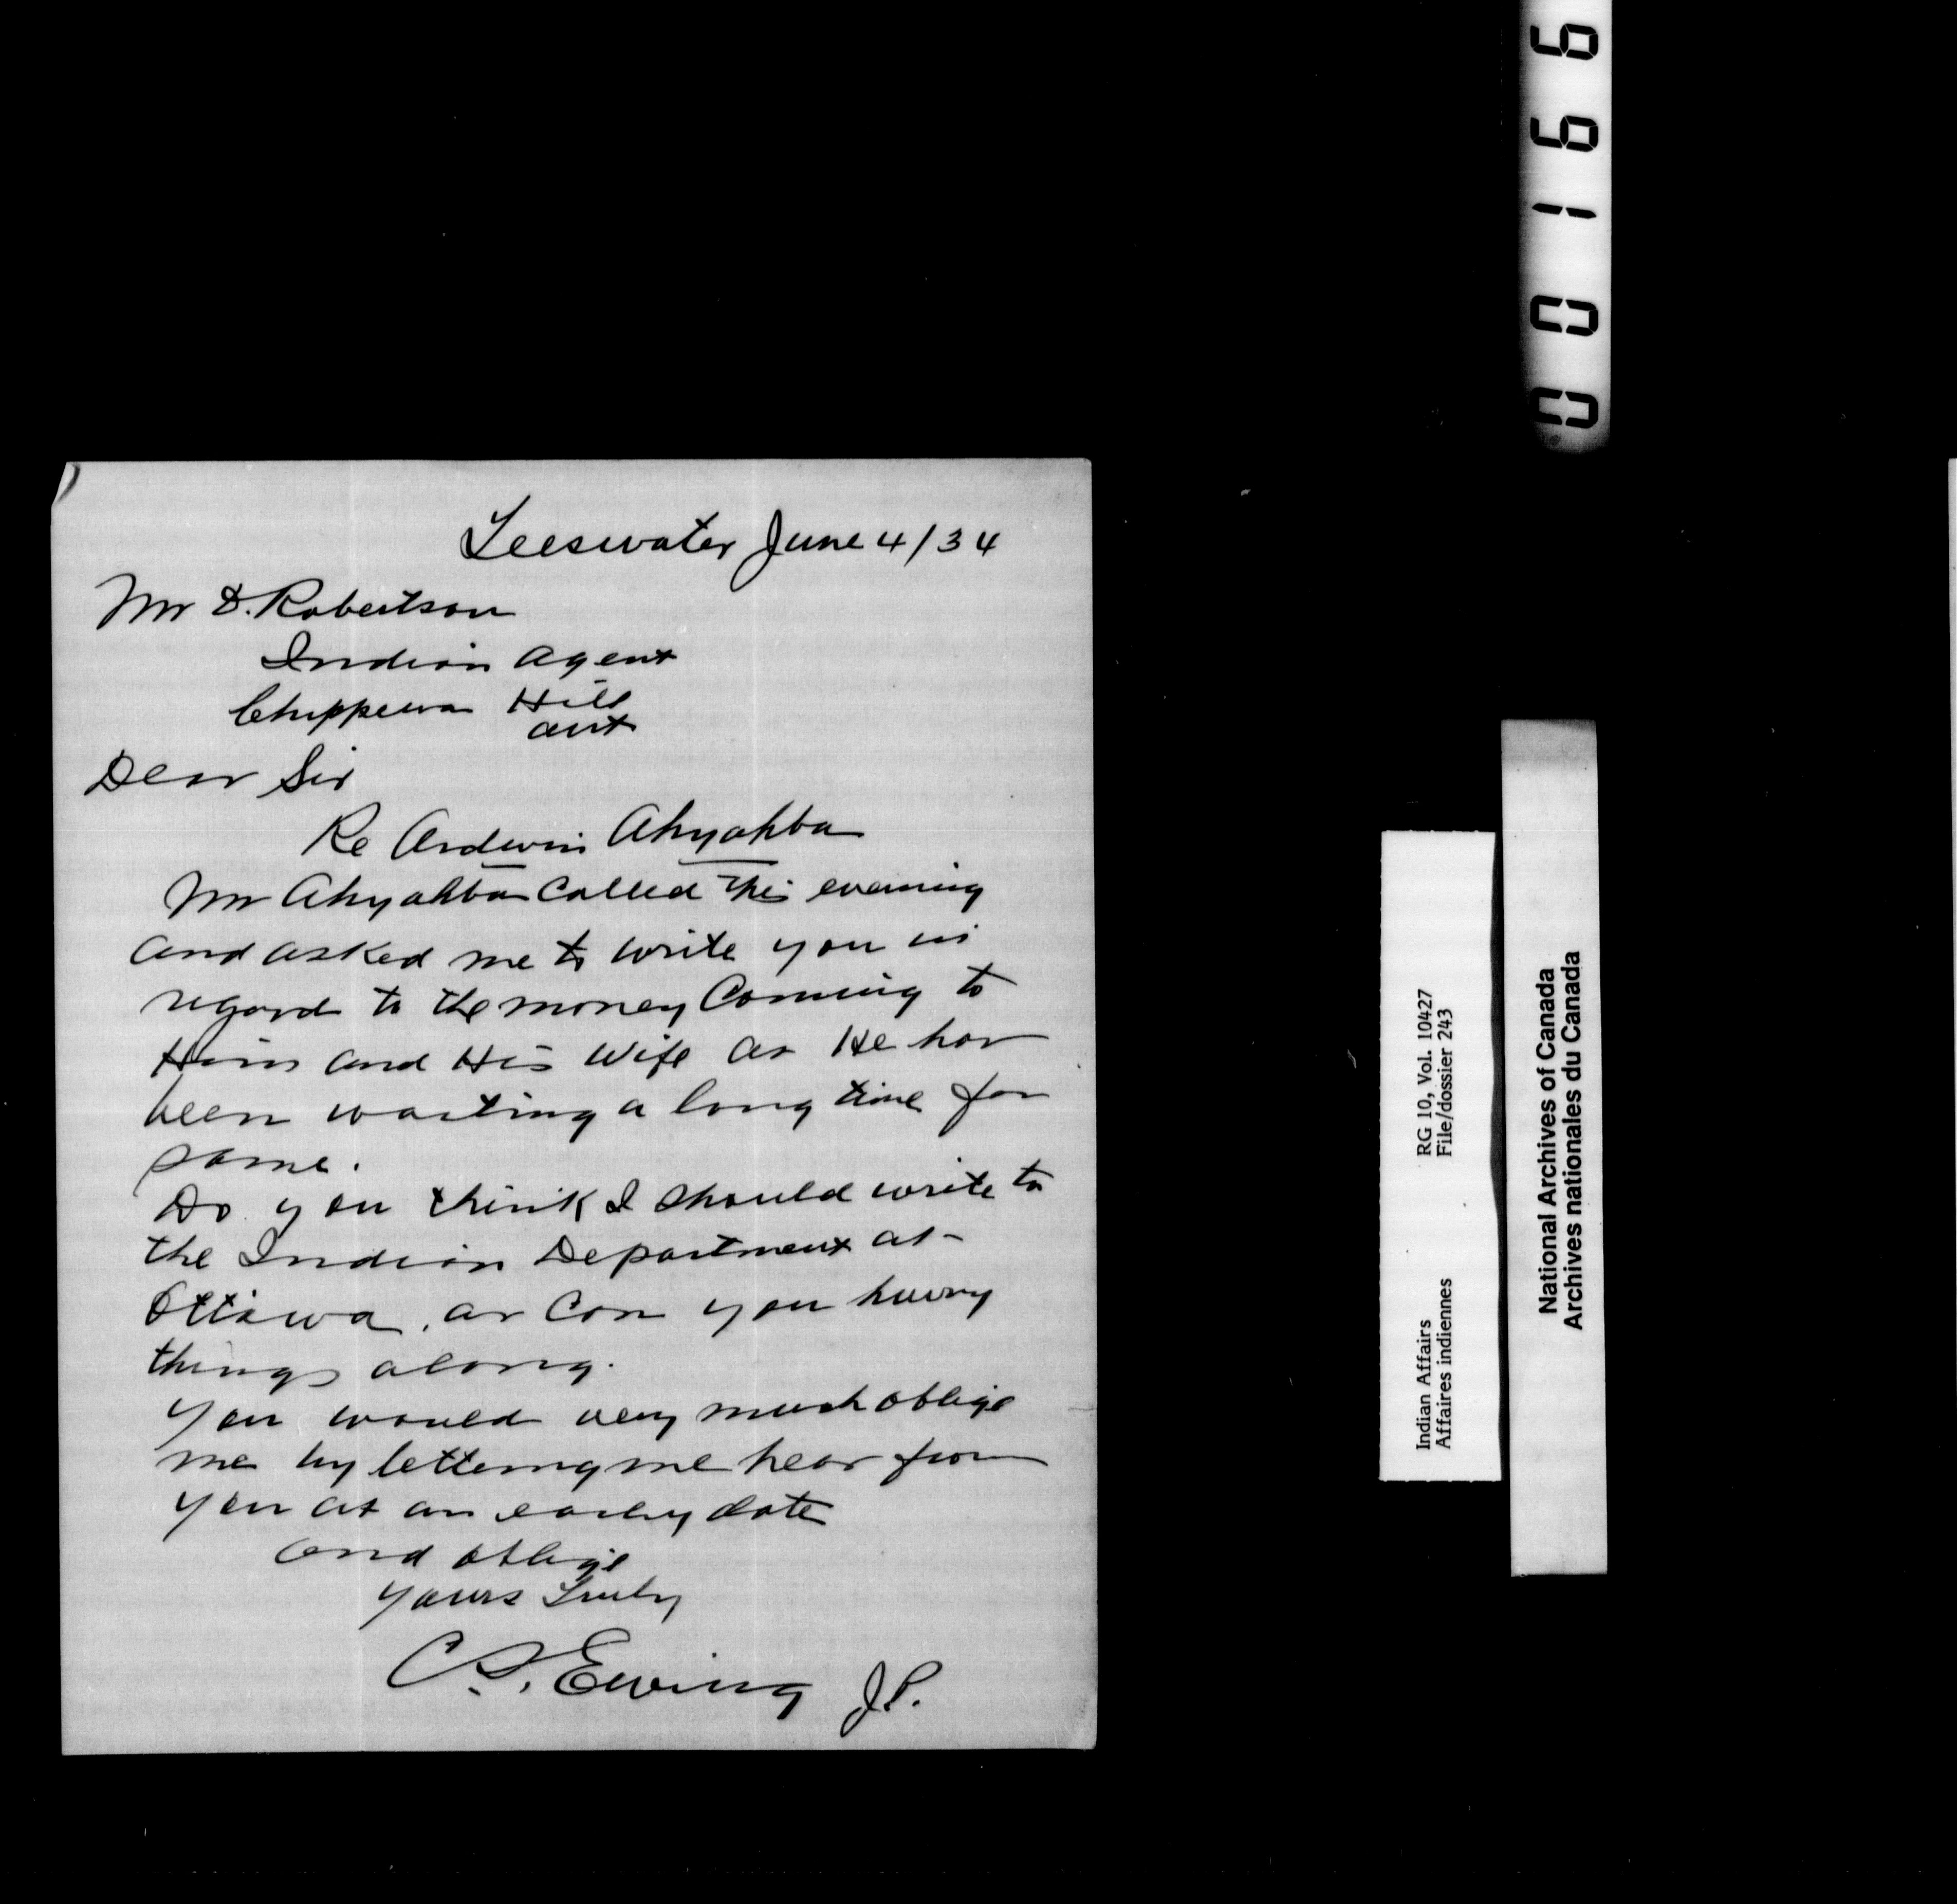 Teeswater June 4/34
Mr D. Robertson
Indian Agent
Chippewa Hill
Ont
Dear Sir
Re Ardwin Ahyahba
Mr Ahyahba Called this evening
and asked me to write you in
regard to the money Coming to
Him and His Wife as He has
been waiting a long time for
same.
Do you think I should write to
the Indian Department at
Ottawa, or Can you hurry
things along.
You would very much oblige
me by letting me hear from
you at an early date
and oblige
yours Truly
Ewing J.P.
00166
Indian Affairs RG 10, Vol. 10427
Affaires indiennes File/dossier 243
National Archives of Canada
Archives nationales du Canada